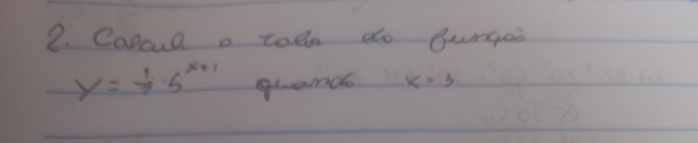 2. Calcul o valor da função
y = 1/3 · 5^x+1 quando x = 3